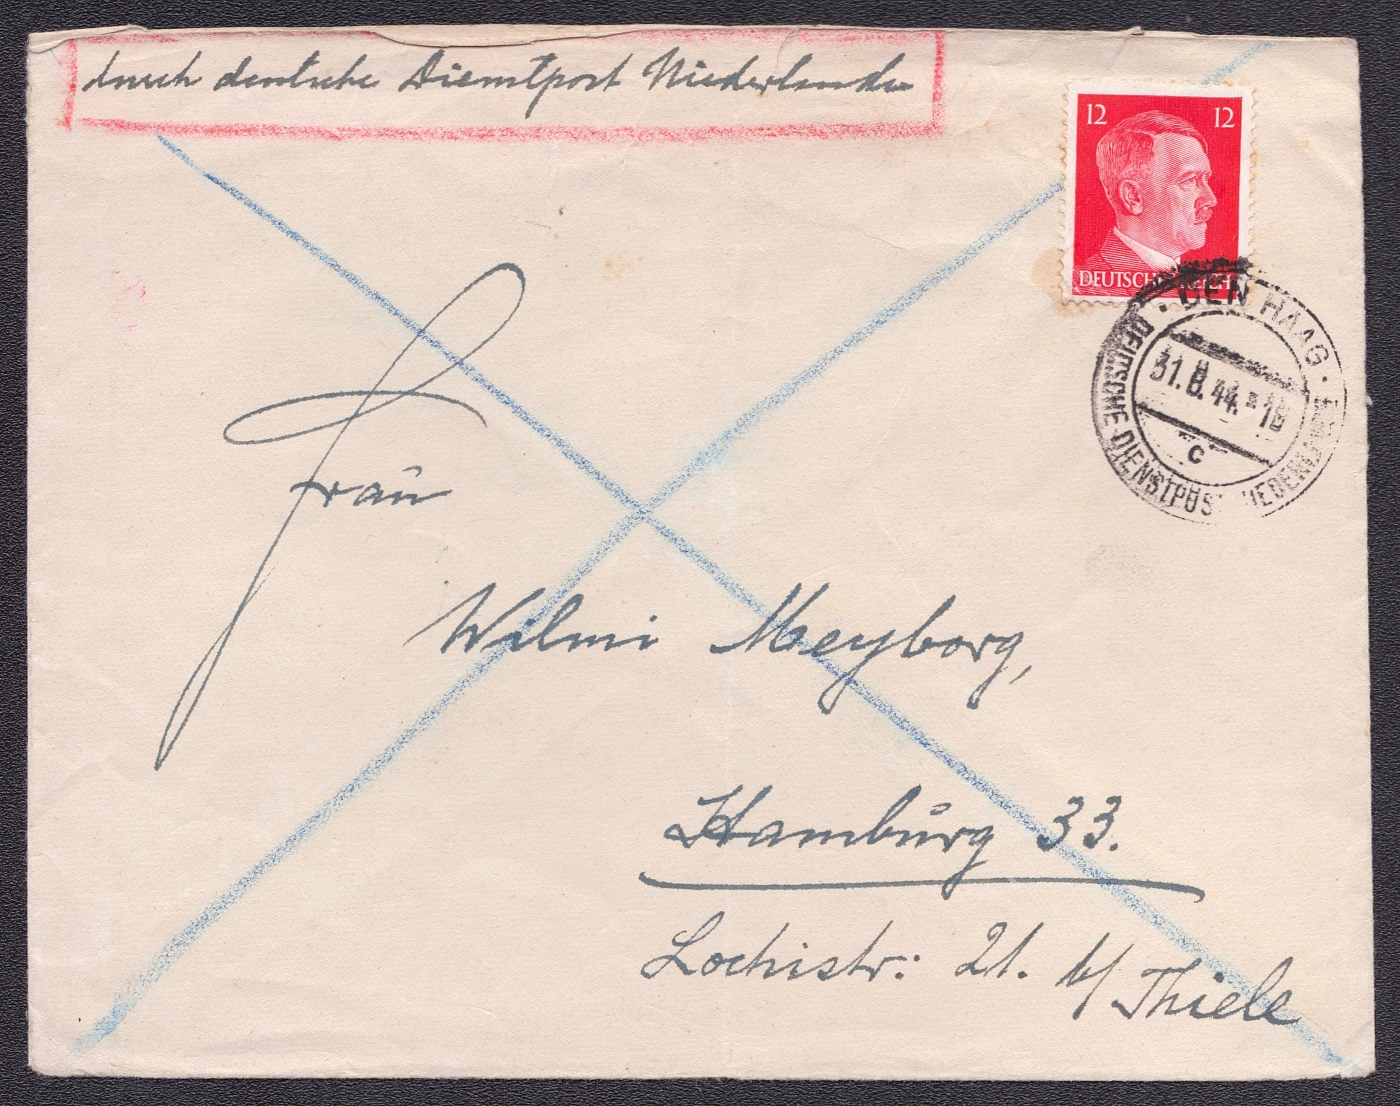 durch deutsche Dienstpost Niederlande
12 12
DEUTSCHES REICH
DEN HAAG
31.8.44.-18
c
DEUTSCHE DIENSTPOST NIEDERLANDE
Frau
Wilmi Meyborg,
Hamburg 33.
Lochistr: 21. b/ Thiele